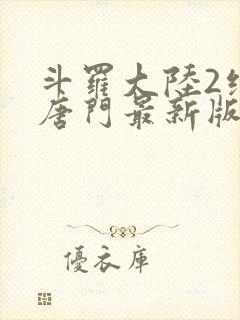 斗羅大陸2
唐門最新版
優衣庫